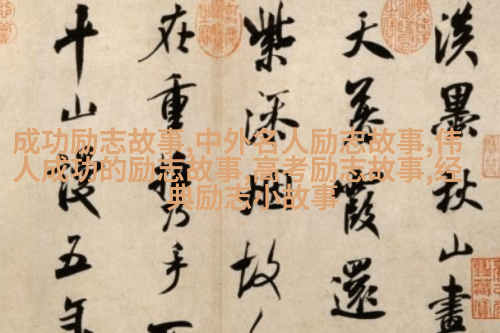 成功励志故事,中外名人励志故事,伟
人成功的励志故事,高考励志故事,经
典励志小故事
淡墨秋山畫
天暮霞還
紫添烟故
在重攜手
平山謾五年